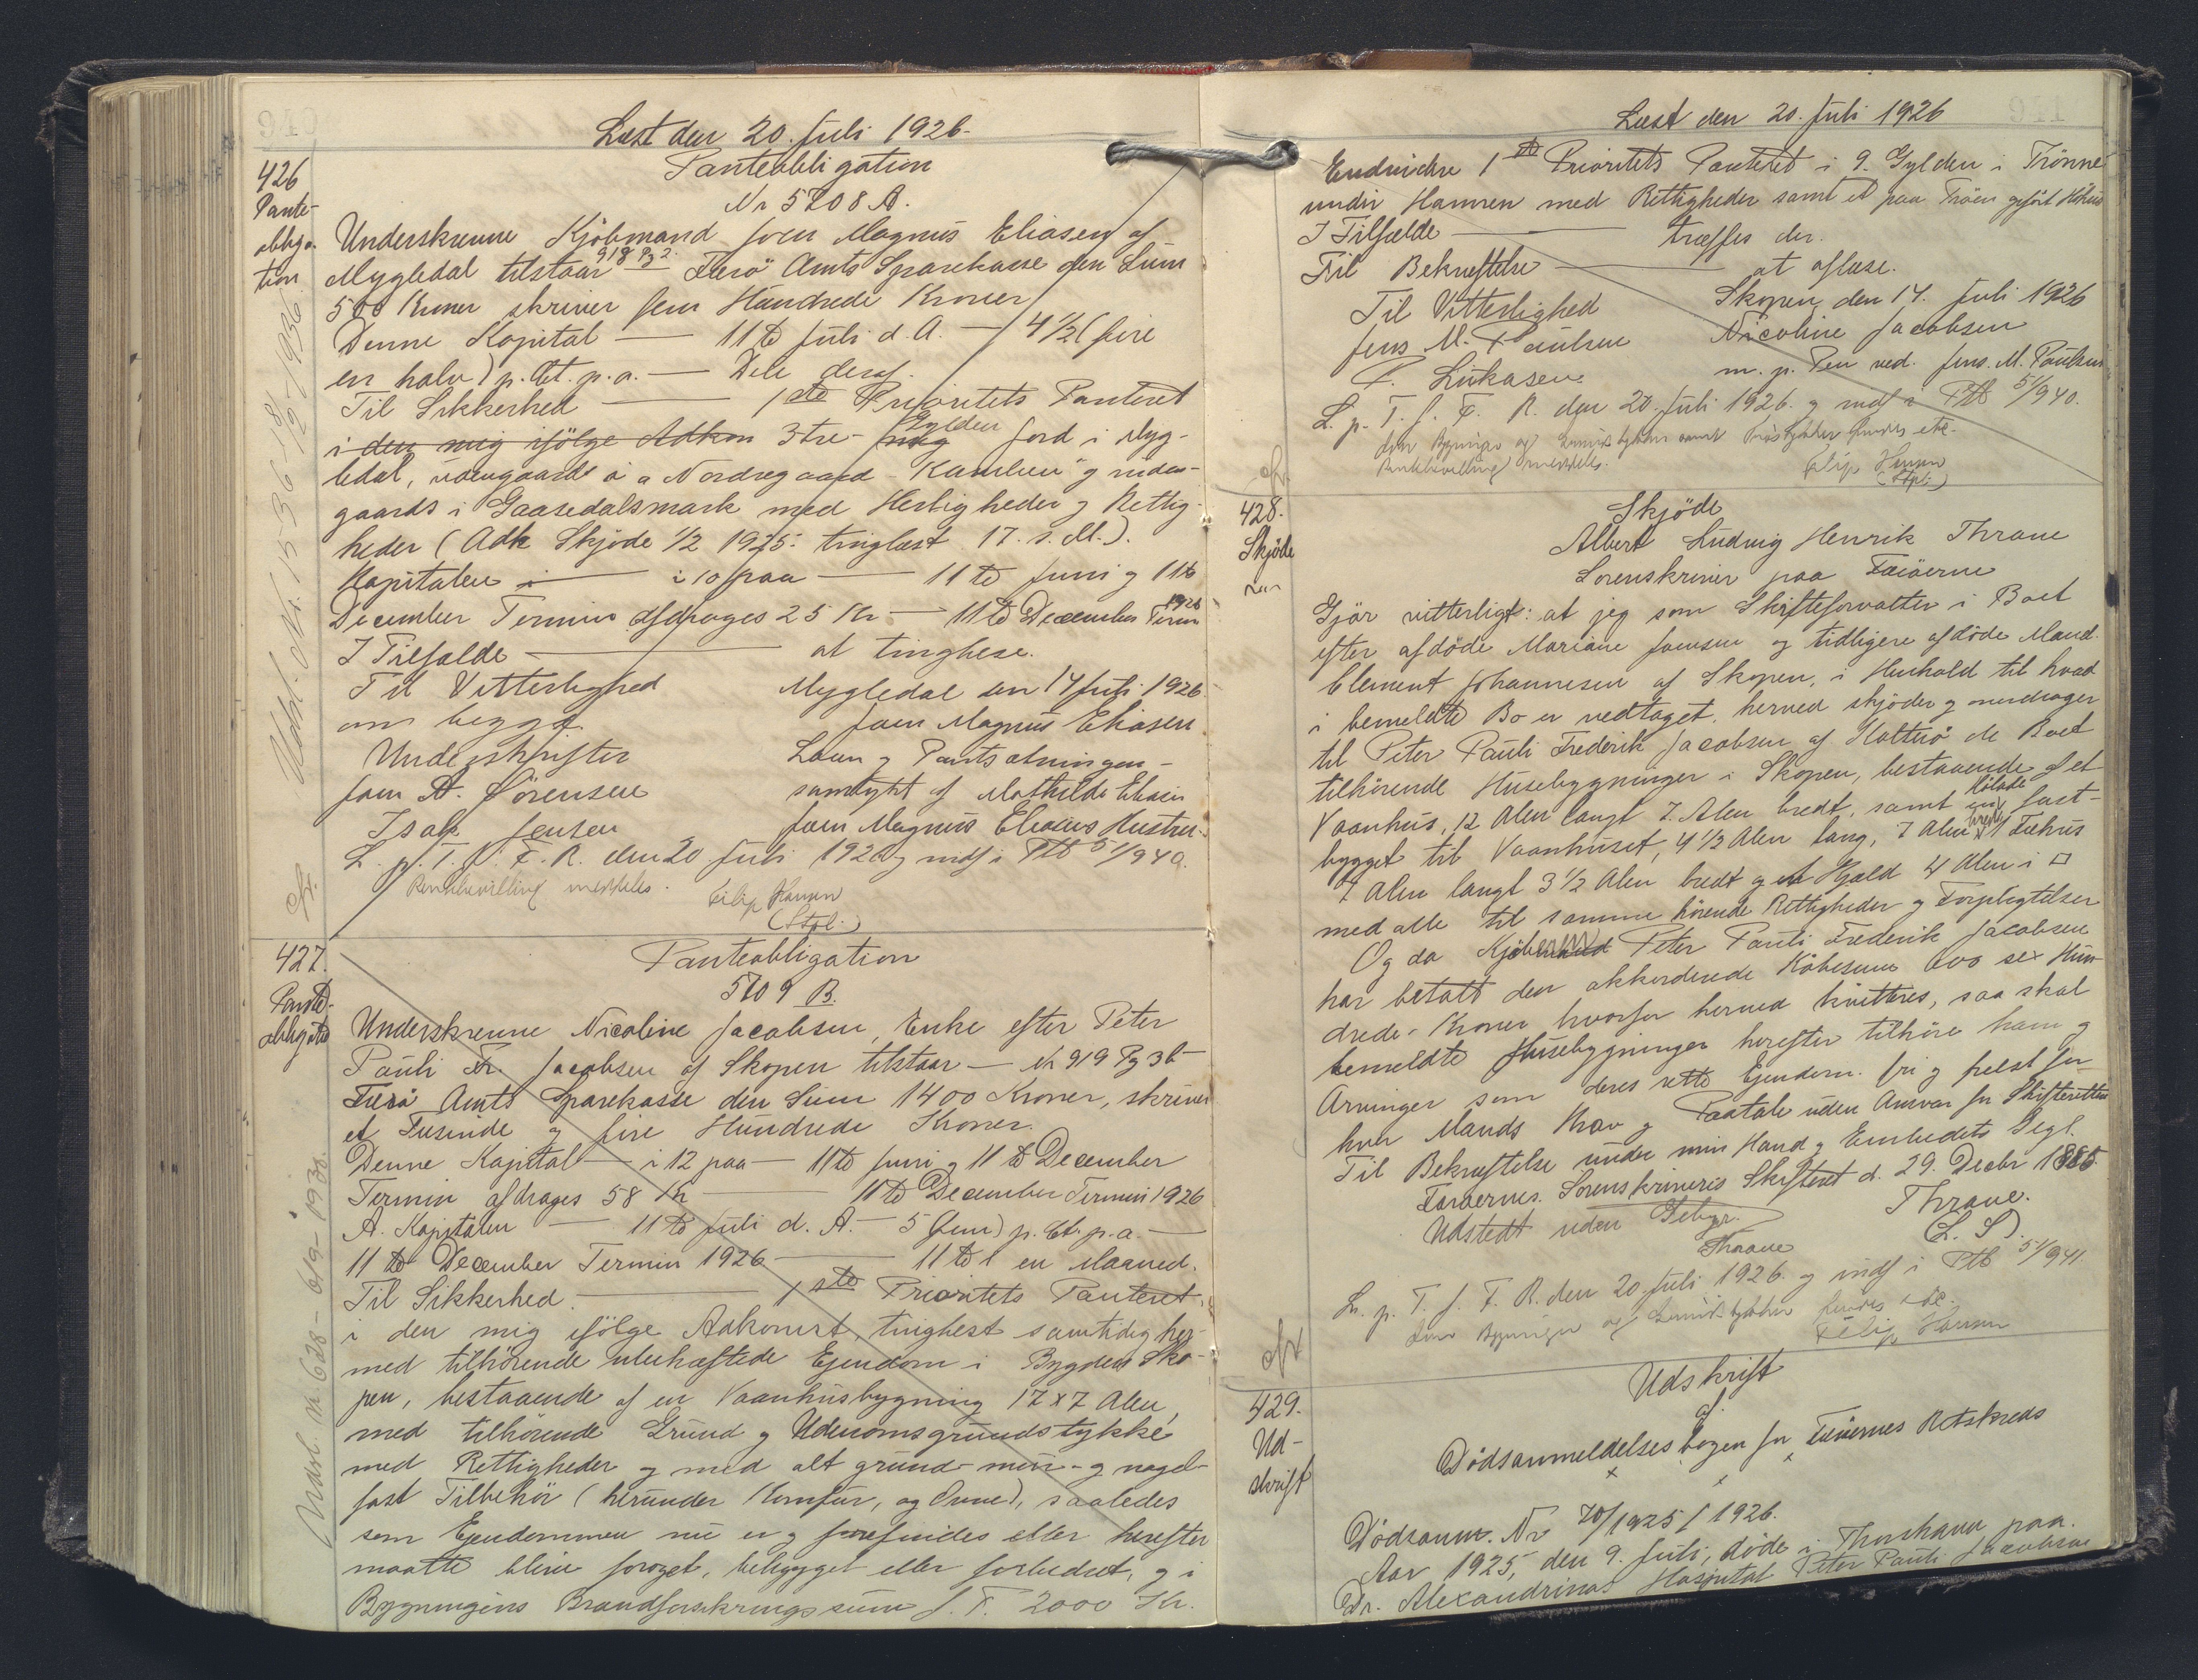 940
Læst den 20. Juli 1926.
426
Pante-
obliga-
tion
Panteobligation
Nr 5708 A.
Underskrevne Kjöbmand Joen Magnus Eliasen af
Mygledal tilstaar 918 Pg 2. Færö Amts Sparekasse den Sum
500 Kroner skriver fem Hundrede Kroner
Denne Kapital — 11te Juli d. A. — 4 1/2 (fire
en halv) p. Ct. p. a. — Dele deraf.
Til Sikkerhed — 1ste Prioritets Panteret
i den mig ifölge Adkom 3 tre- Gylden Jord i Myg-
ledal, udengaards i a Nordregaard - Kamben" og inden-
gaards i Gaasedalsmark med Herligheder og Rettig-
heder (Adk Skjöde 1/2 1925. tinglæst 17. s. M.).
Kapitalen i — i 10 paa — 11te Juni og 11te
December Termin afdrages 25 Kr — 11te December Term 1926
I Tilfælde — at tinglæse.
Til Vitterlighed Mygledal den 14 Juli 1926.
om begge Joen Magnus Eliasen
Underskrifter Laan og Pantsætningen-
Joen A. Sörensen samtykt af Mathilde Eliasen
Isak Jensen Joen Magnus Eliasens Hustru.
L. p. T. f. F. R. den 20 Juli 1926 og indf i Ptb 51/940.
Rentebevilling meddeles. Filip Hansen
(Stpl.)
427.
Pante-
obligatio
Panteobligation
5709 B.
Underskrevne Nicoline Jacobsen, Enke efter Peter
Pauli Fr. Jacobsen af Skopen tilstaar — Nr 919 Pg 3b —
Færö Amts Sparekasse den Sum 1400 Kroner, skriver
et Tusinde og fire Hundrede Kroner.
Denne Kapital — i 12 paa — 11te Juni og 11te December
Termin afdrages 58 Kr — 11te December Termin 1926
A. Kapitalen — 11te Juli d. A. — 5 (fem) p. Ct. p. a. —
11te December Termin 1926 — 11te 1 en Maaned.
Til Sikkerhed. — 1ste Prioritets Panteret,
i den mig ifölge Adkomst, tinglæst samtidig her-
med tilhörende ubehæftede Ejendom i Bygden Sko-
pen, bestaaende af en Vaanhusbygning 17 x 7 Alen,
med tilhörende Grund og Udenomsgrundstykke
med Rettigheder og med alt grund- mur- og nagel-
fast Tilbehör (herunder Komfur, og Ovne), saaledes
som Ejendommen nu er og forefindes eller herefter
maatte blive foröget, bebygget eller forbedret, og i
Bygningens Brandforsikringssum f. T. 2000 Kr.
941
Læst den 20. Juli 1926
Endvidere 1ste Prioritets Panteret i 9. Gylden i Trönne
under Hamren med Rettigheder samt et paa Tröen opfört
I Tilfælde — træffes der.
Til Bekræftelse — at aflæse.
Til Vitterlighed Skopen, den 14. Juli 1926
Jens M. Paulsen Nicoline Jacobsen
P. Lukasen m. p. Pen ved. Jens. M. Paulsen
L. p. T. f. F. R. den 20. Juli 1926. og indf i Ptb 51/940.
Rentebevilling meddeles. Filip Hansen
(Stpl.)
428.
Skjöde
Skjöde
Albert Ludvig Henrik Thrane
Sorenskriver paa Færöerne
Gjör vitterligt: at jeg som Skifteforvalter i Boet
efter afdöde Mariane Joensen og tidligere afdöde Mand
Clement Johannesen af Skopen, i Henhold til hvad
i bemeldte Bo er vedtaget, herved skjöder og overdrager
til Peter Pauli Frederik Jacobsen af Koltersö de Boet
tilhörende Husebygninger i Skopen, bestaaende af et
Vaanhus, 12 Alen langt 7. Alen bredt, samt fast-
bygget til Vaanhuset, 4 1/2 Alen lang, 7 Alen bred, 1 Fæhus
7 Alen langt 3 1/2 Alen bredt og et Hjald 4 Alen i □
med alle til samme hörende Rettigheder og Forpligtelser
Og da Kjöberen Peter Pauli Frederik Jacobsen
har betalt den akkorderede Köbesum 600 sex Hun-
drede- Kroner hvorfor herved kvitteres, saa skal
bemeldte Husebygninger herefter tilhöre ham og
Arvinger som deres rette Ejendom. fri og frelst for
hver Mands Krav og Paatale uden Ansvar for Skifteretten
Til Bekræftelse under min Haand og Embedets Segl.
Færöernes. Sorenskriveris Skifteret d. 29. Decbr 1885.
Udstedt uden Gebyr. Thrane.
Thrane (L. S).
L. p. T. f. F. R. den 20. Juli 1926. og indf i Ptb 51/941.
Filip Hansen
429.
Ud-
skrift
Udskrift
af
Dödsanmeldelsesbogen for Færöernes Retskreds
Dödsanm. Nr 70/1925 / 1926.
Aar 1925, den 9. Juli, döde i Thorshavn paa.
Dr. Alexandrines Hospital Peter Pauli Jacobsen